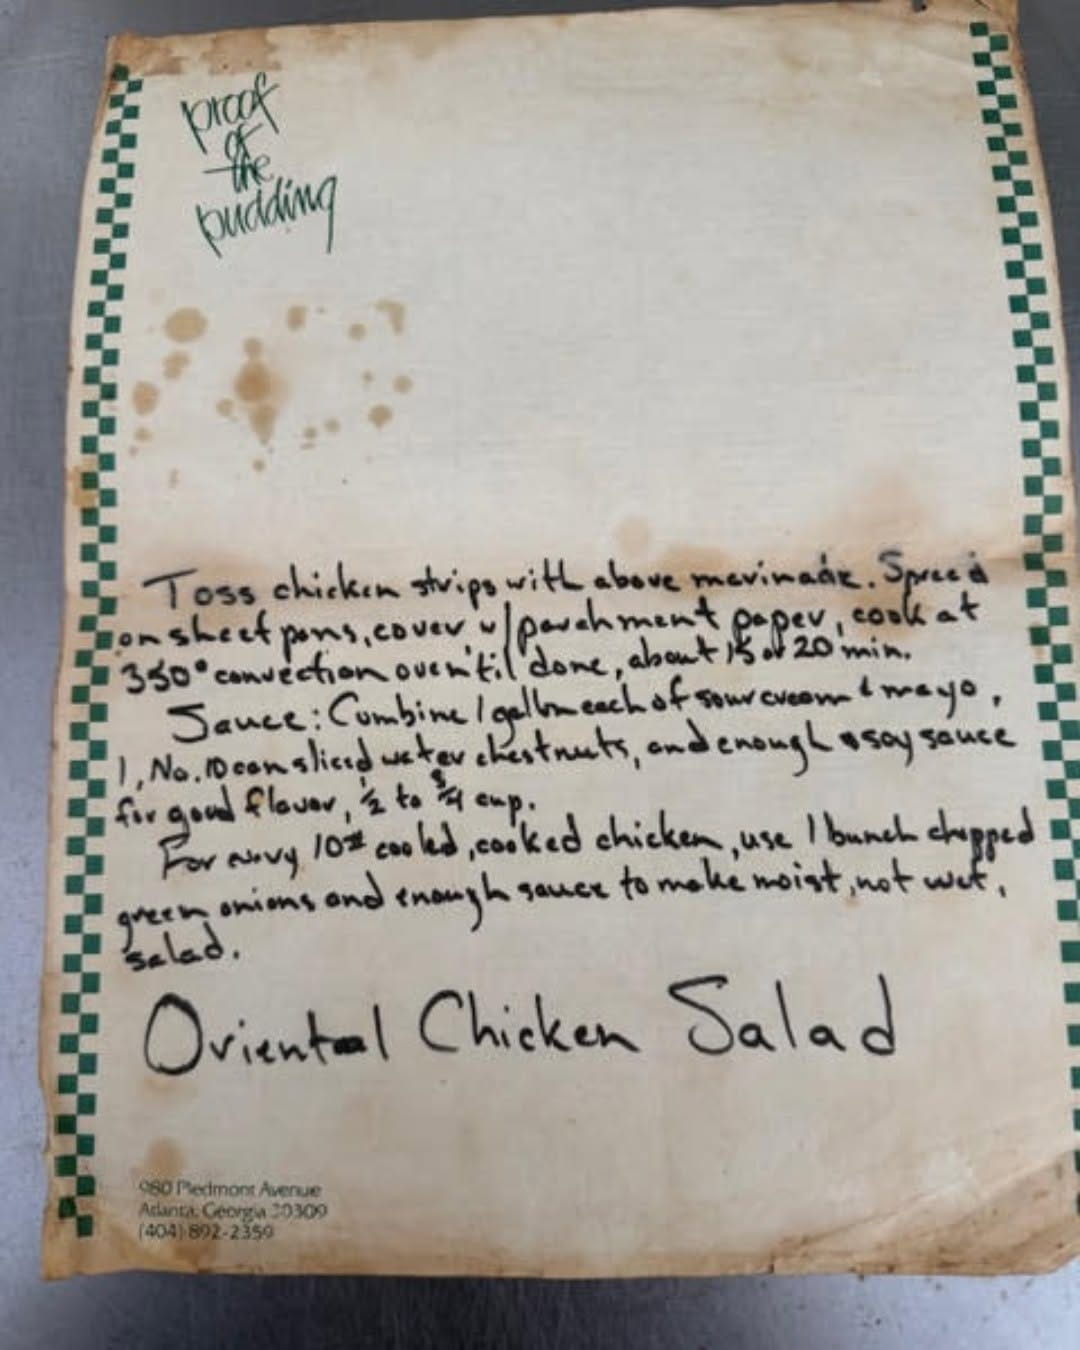 proof
of
the
pudding
Toss chicken strips with above marinade. Spread
on sheet pans, cover w/parchment paper, cook at
350° convection oven 'til done, about 15 or 20 min.
Sauce: Combine 1 gallon each of sour cream & mayo,
1, No. 10 can sliced water chestnuts, and enough soy sauce
for good flavor, ½ to ¾ cup.
For every 10# cooled, cooked chicken, use 1 bunch chopped
green onions and enough sauce to make moist, not wet,
salad.
Oriental Chicken Salad
980 Piedmont Avenue
Atlanta, Georgia 30309
(404) 892-2359